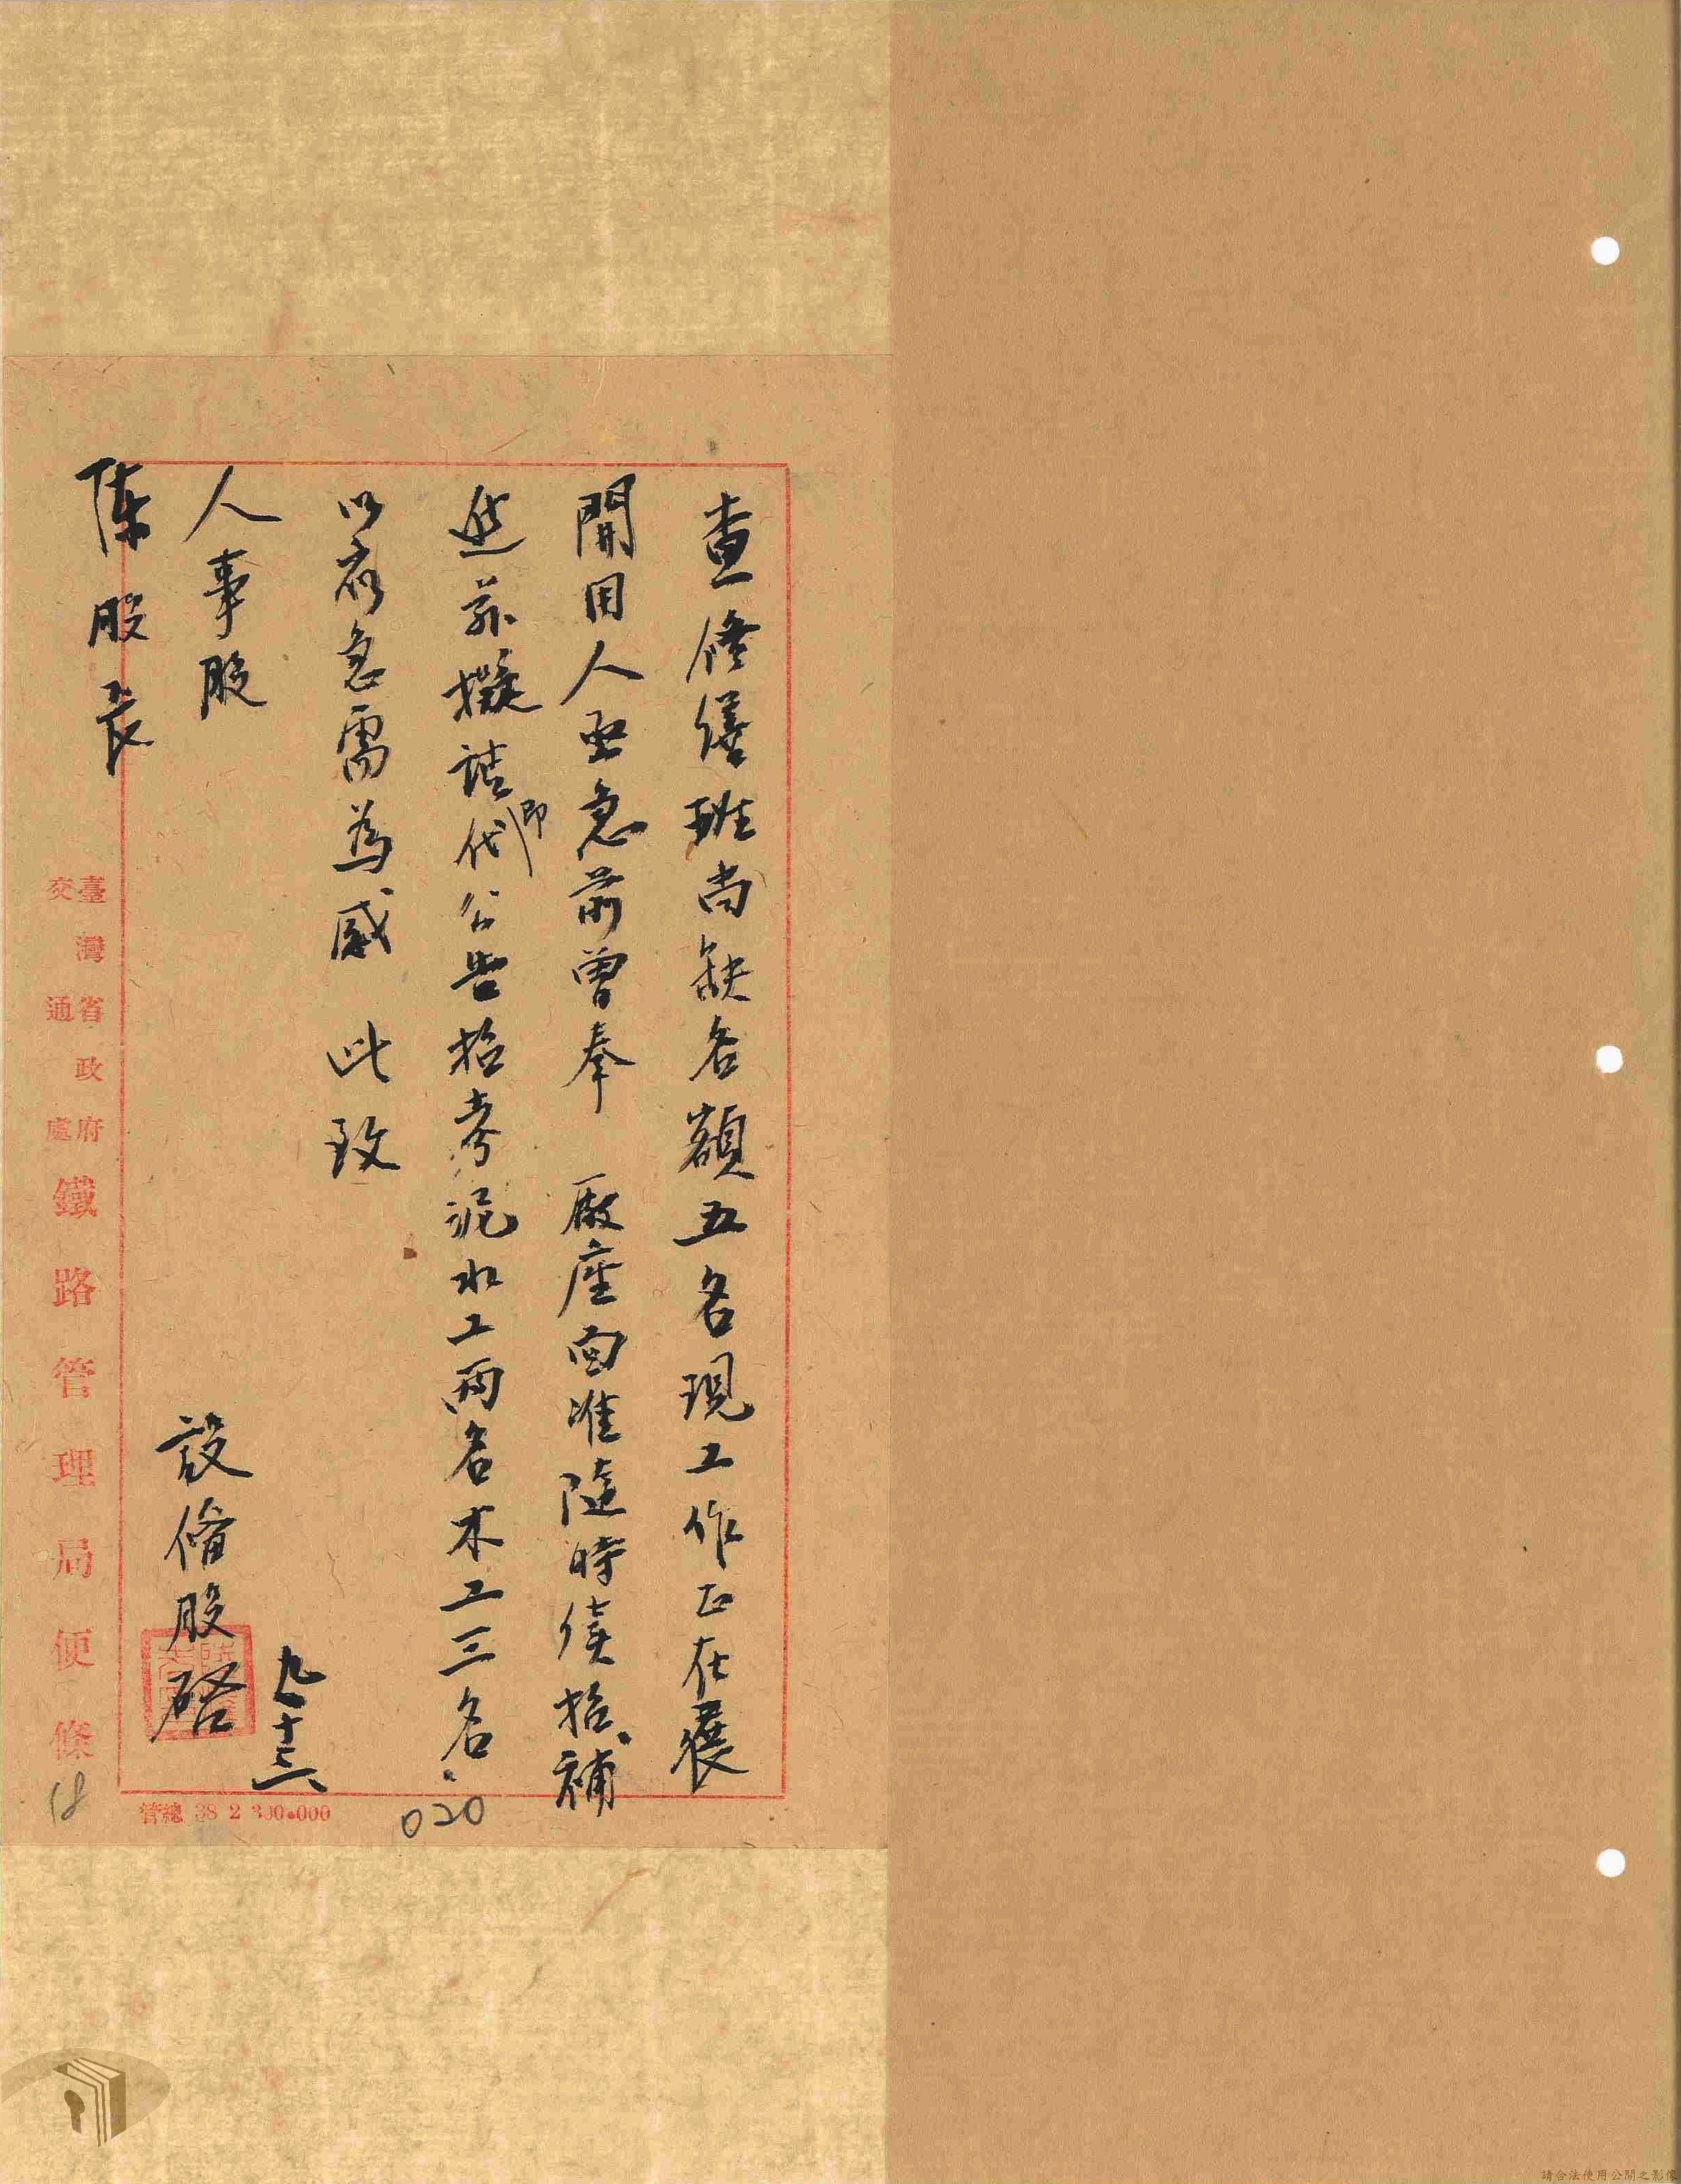 查修繕班尚缺名額五名現工作正在展
開用人亟急前曾奉 廠座面准隨時續招補
進茲擬請即代公告招考泥水工兩名木工三名
以應急需為感 此致
人事股
陳股長
設備股啓
九十三
臺灣省政府
交通處
鐵路管理局便條
管總 38 2 300.000
020
18
請合法使用公開之影像